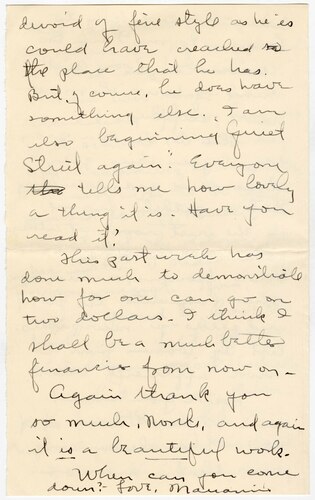 devoid of fine style as he is
could have reached so
the place that he has.
But, of course, he does have
something else. I am
also beginning "Quiet
Street again." Everyone
tells me how lovely
a thing it is. Have you
read it?
This past week has
done much to demonstrate
how far one can go on
two dollars. I think I
shall be a much better
financier from now on -
Again thank you
so much, and again
it is a beautiful work.
When can you come
down? - Love,